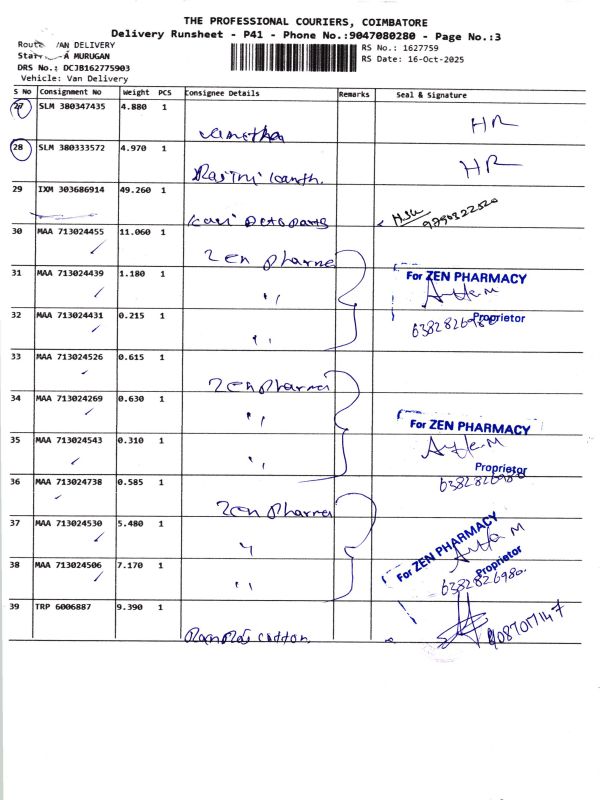 THE PROFESSIONAL COURIERS, COIMBATORE
Delivery Runsheet - P41 - Phone No.:9047080280 - Page No.:3
Route VAN DELIVERY
RS No.: 1627759
A MURUGAN
RS Date: 16-Oct-2025
DRS No.: DCJB162775903
Vehicle: Van Delivery
S No Consignment No Weight PCS Consignee Details Remarks Seal & Signature
27 SLM 380347435 4.880 1
HR
28 SLM 380333572 4.970 1
HR
29 IXM 303686914 49.260 1
9790322520
30 MAA 713024455 11.060 1
Zen Pharma
31 MAA 713024439 1.180 1
For ZEN PHARMACY
"
32 MAA 713024431 0.215 1
Proprietor
"
33 MAA 713024526 0.615 1
Zen Pharma
34 MAA 713024269 0.630 1
"
For ZEN PHARMACY
35 MAA 713024543 0.310 1
"
Proprietor
6382826980
36 MAA 713024738 0.585 1
Zen Pharma
37 MAA 713024530 5.480 1
"
For ZEN PHARMACY
38 MAA 713024506 7.170 1
Proprietor
"
6382826980
39 TRP 6006887 9.390 1